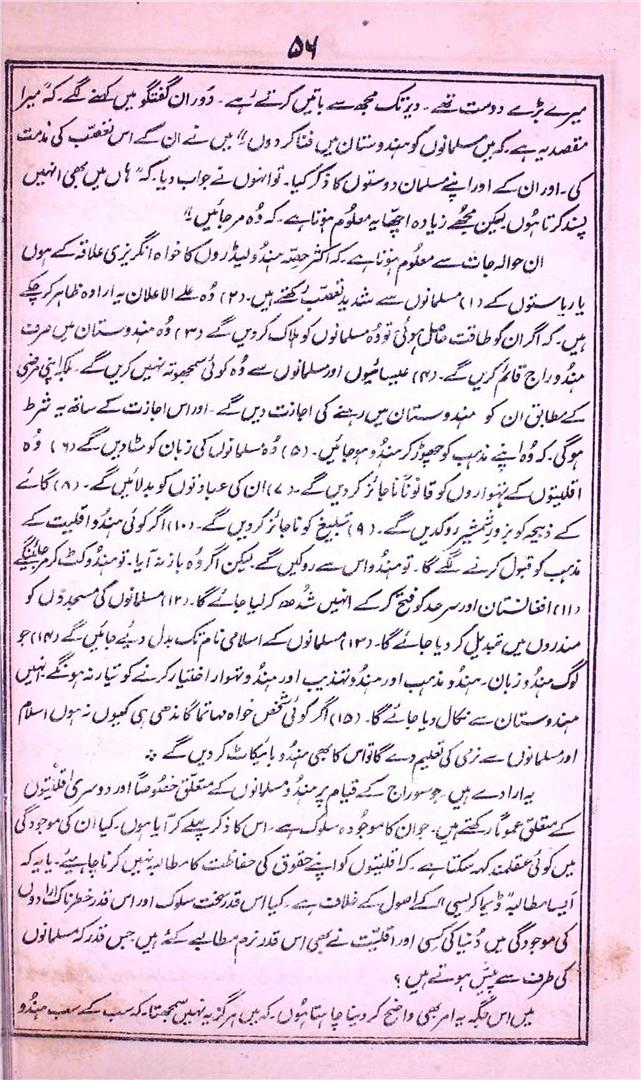 ۵۶
میرے بڑے دوست تھے۔ دیر تک مجھ سے باتیں کرتے رہے۔ دَوران گفتگو میں کہنے لگے۔ کہ "میرا
مقصد یہ ہے۔ کہ میں مسلمانوں کو ہندوستان میں فنا کر دوں"۔ میں نے ان کے اس تعصّب کی مذمت
کی۔ اور ان کے اور اپنے مسلمان دوستوں کا ذکر کیا۔ تو انہوں نے جواب دیا۔ کہ "ہاں میں بھی انہیں
پسند کرتا ہُوں۔ لیکن مجھے زیادہ اچھا یہ معلوم ہوتا ہے۔ کہ وُہ مر جائیں"۔
ان حوالہ جات سے معلُوم ہوتا ہے۔ کہ اکثر حصّہ ہندو لیڈروں کا خواہ انگریزی علاقہ کے ہوں
یا ریاستوں کے (۱) مسلمانوں سے شدید تعصّب رکھتے ہیں۔ (۲) وُہ علے الاعلان یہ ارادہ ظاہر کر چکے
ہیں۔ کہ اگر ان کو طاقت حاصل ہوئی تو وُہ مسلمانوں کو ہلاک کر دیں گے۔ (۳) وُہ ہندوستان میں صرف
ہندو راج قائم کریں گے۔ (۴) عیسائیوں اور مسلمانوں سے وُہ کوئی سمجھوتہ نہیں کریں گے۔ بلکہ اپنی مرضی
کے مطابق ان کو ہندوستان میں رہنے کی اجازت دیں گے۔ اور اس اجازت کے ساتھ یہ شرط
ہو گی۔ کہ وُہ اپنے مذہب کو چھوڑ کر ہندو ہو جائیں۔ (۵) وُہ مسلمانوں کی زبان کو مٹا دیں گے (۶) وُہ
اقلیتوں کے تہواروں کو قانوناً ناجائز کر دیں گے۔ (۷) ان کی عبادتوں کو بدلائیں گے۔ (۸) گائے
کے ذبیحہ کو بزور شمشیر روکدیں گے۔ (۹) تبلیغ کو ناجائز کر دیں گے۔ (۱۰) اگر کوئی ہندو اقلیت کے
مذہب کو قبول کرنے لگے گا۔ تو ہندو اس سے روکیں گے۔ لیکن اگر وُہ باز نہ آیا۔ تو ہندو کٹ کر مر جائینگے
(۱۱) افغانستان اور سرحد کو فتح کر کے انہیں شُدھ کر لیا جائے گا۔ (۱۲) مسلمانوں کی مسجدوں کو
مندروں میں تبدیل کر دیا جائے گا۔ (۱۳) مسلمانوں کے اسلامی نام تک بدل دیئے جائیں گے (۱۴) جو
لوگ ہندو زبان۔ ہندو مذہب اور ہندو تہذیب اور ہندو تہوار اختیار کرنے کو تیار نہ ہونگے۔ انہیں
ہندوستان سے نکال دیا جائے گا۔ (۱۵) اگر کوئی شخص خواہ مہاتما گاندھی ہی کیوں نہ ہوں اسلام
اور مسلمانوں سے نرمی کی تعلیم دے گا تو اس کا بھی ہندو بائیکاٹ کر دیں گے ؞
یہ ارادے ہیں۔ جو سوراج کے قیام پر ہندو مسلمانوں کے متعلّق خصُوصاً اور دوسری اقلیّتوں
کے متعلّق عموماً رکھتے ہیں۔ جو ان کا موجُودہ سلوک ہے۔ اس کا ذکر پہلے کر آیا ہوں۔ کیا ان کی موجودگی
میں کوئی عقلمند کہہ سکتا ہے۔ کہ اقلیتوں کو اپنے حقوق کی حفاظت کا مطالبہ نہیں کرنا چاہیئے۔ یا یہ کہ
ایسا مطالبہ "ڈیماکریسی" کے اصول کے خلاف ہے۔ کیا اس قدر سخت سلوک اور اس قدر خطرناک ارادوں
کی موجودگی میں دُنیا کی کِسی اور اقلیّت نے بھی اس قدر نرم مطالبے کئے ہیں جس قدر کہ مسلمانوں
کی طرف سے پیش ہوتے ہیں؟
میں اس جگہ یہ امر بھی واضح کر دینا چاہتا ہُوں۔ کہ میں ہرگز یہ نہیں سمجھتا۔ کہ سب کے سب ہندو